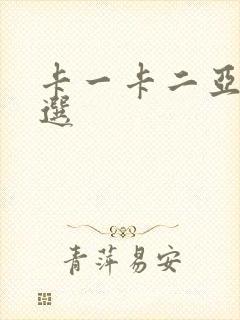 卡一卡二亞
選
青萍易安